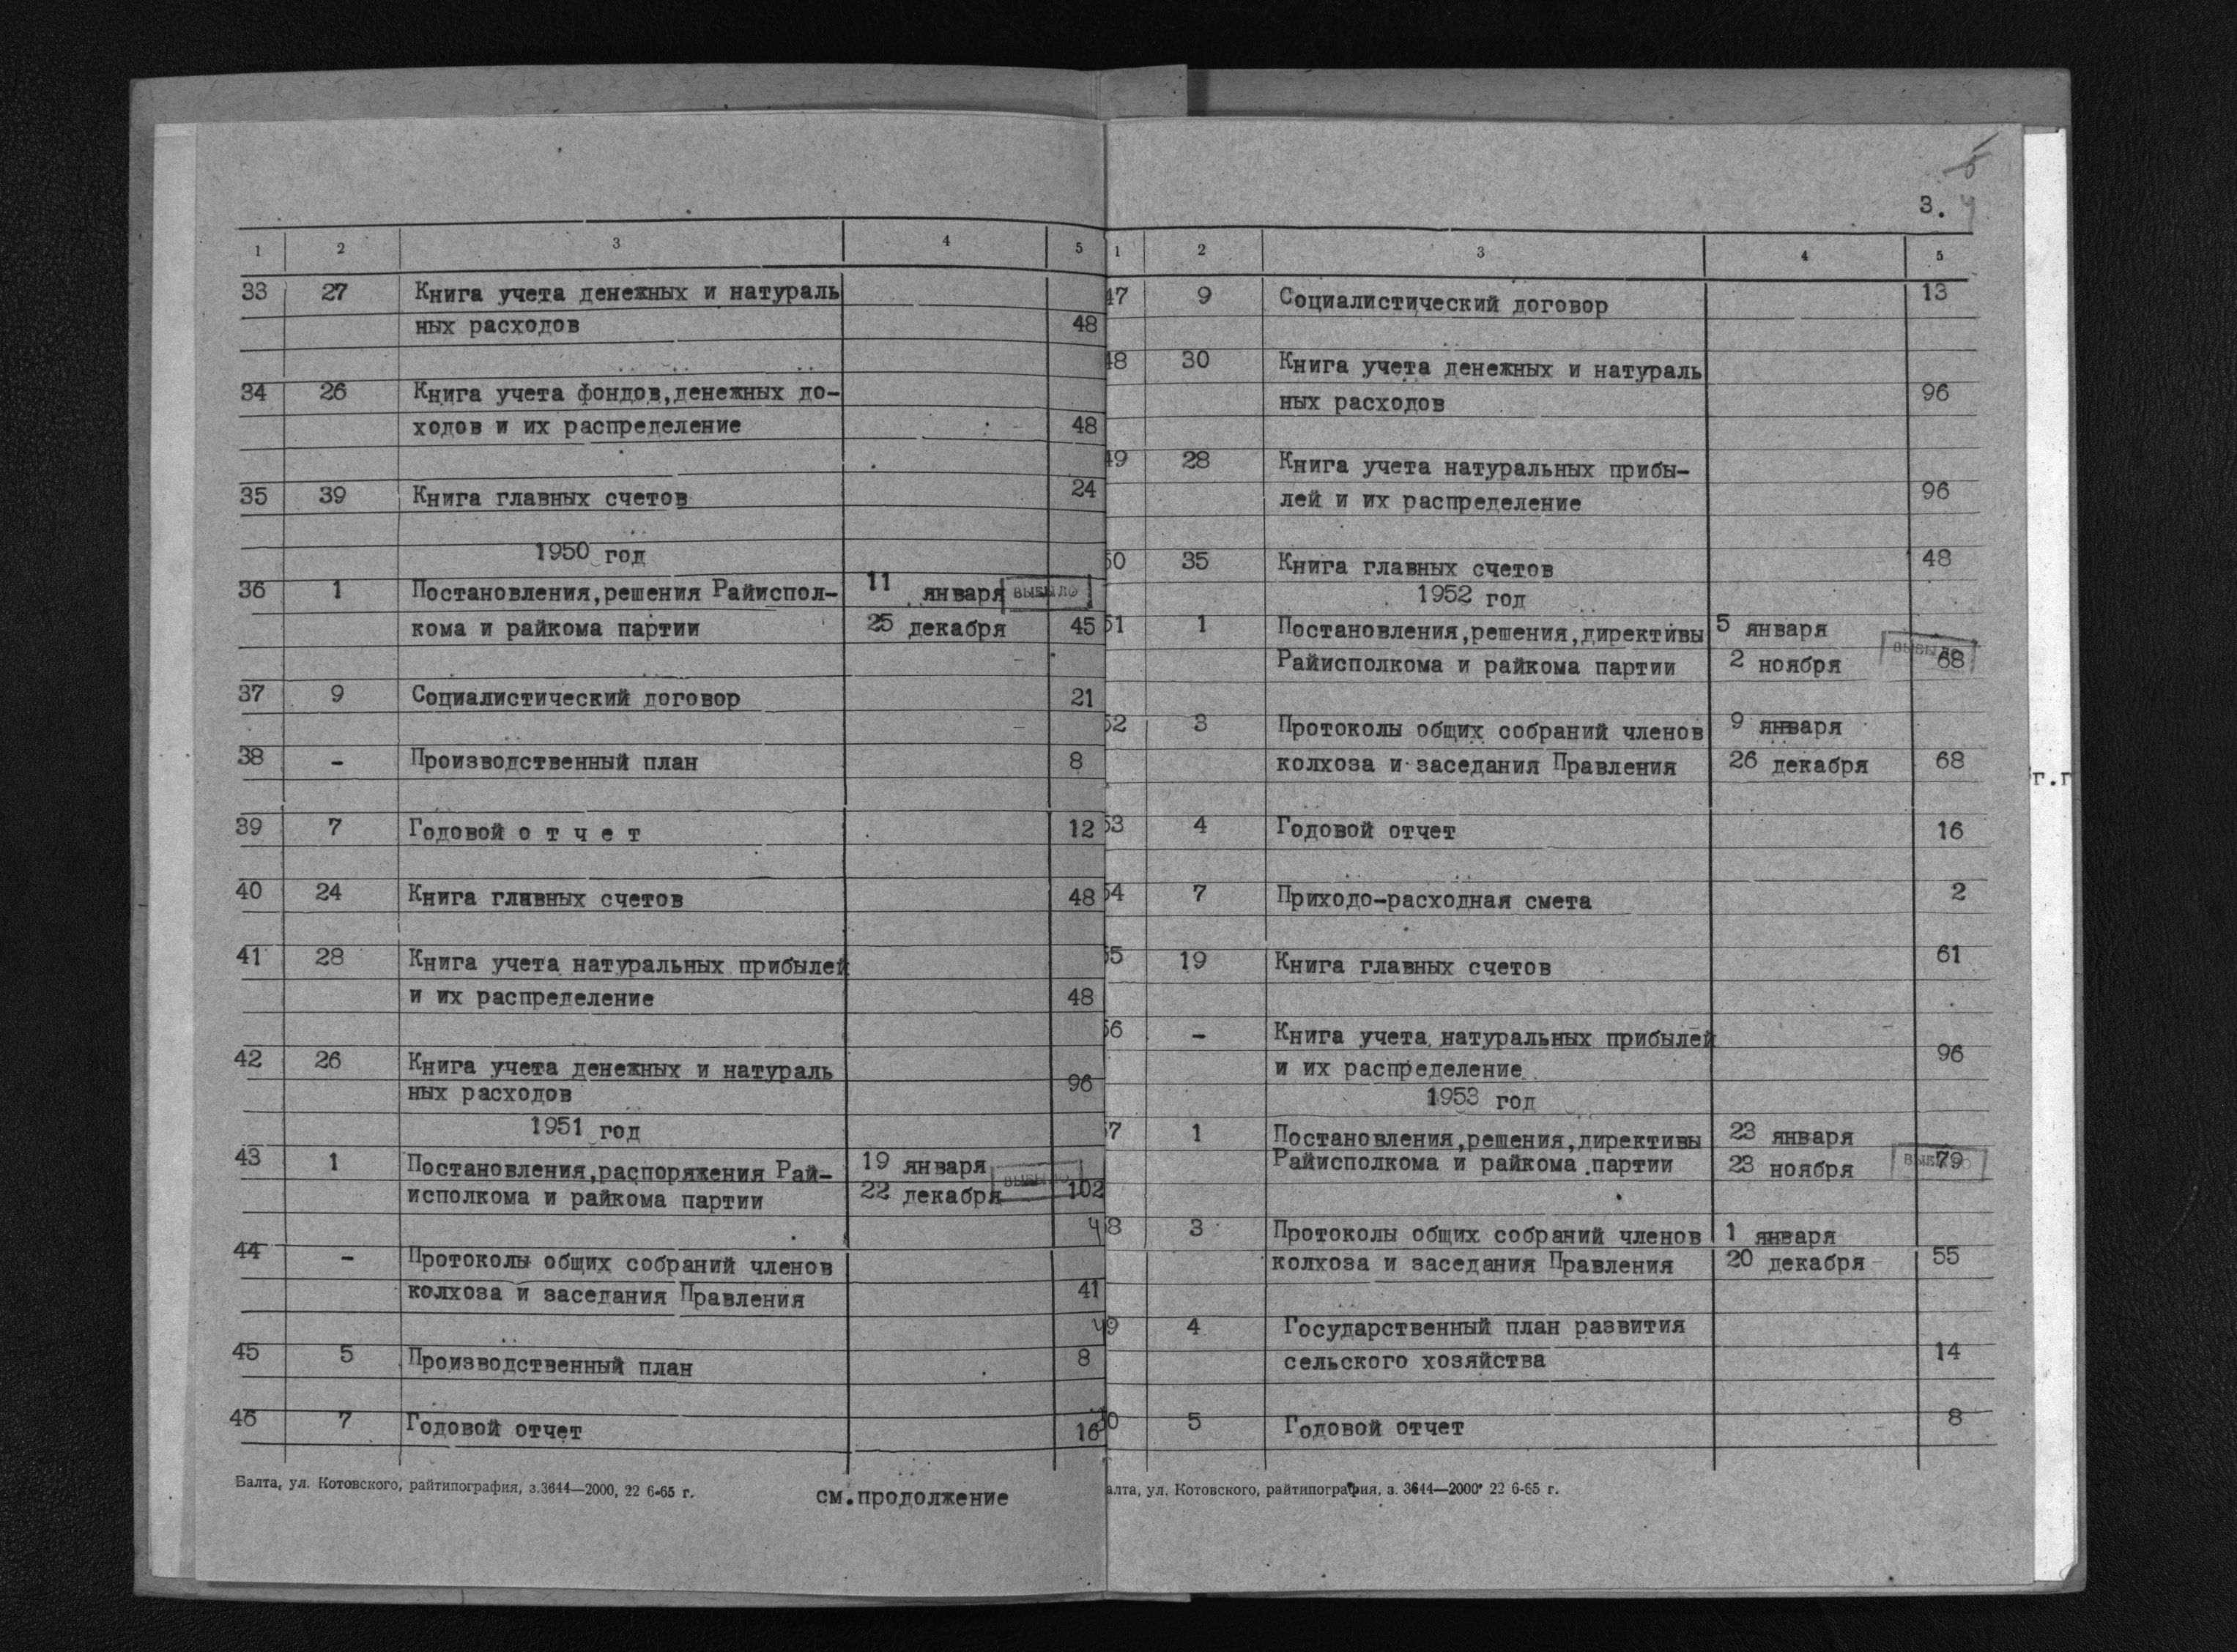 1 2 3 4 5
33 27 Книга учета денежных и натураль
ных расходов 48
34 26 Книга учета фондов,денежных до-
ходов и их распределение 48
35 39 Книга главных счетов 24
1950 год
36 1 Постановления,решения Райиспол- 11 января ВЫБЫЛО
кома и райкома партии 25 декабря 45
37 9 Социалистический договор 21
38 - Производственный план 8
39 7 Годовой о т ч е т 12
40 24 Книга главных счетов 48
41 28 Книга учета натуральных прибылей
и их распределение 48
42 26 Книга учета денежных и натураль
ных расходов 96
1951 год
43 1 Постановления,распоряжения Рай- 19 января ВЫБЫЛО
исполкома и райкома партии 22 декабря 102
44 - Протоколы общих собраний членов
колхоза и заседания Правления 41
45 5 Производственный план 8
46 7 Годовой отчет 16
Балта, ул. Котовского, райтипография, з.3644—2000, 22 6-65 г.
см.продолжение
3.
1 2 3 4 5
47 9 Социалистический договор 13
48 30 Книга учета денежных и натураль
ных расходов 96
49 28 Книга учета натуральных прибы-
лей и их распределение 96
50 35 Книга главных счетов 48
1952 год
51 1 Постановления,решения,директивы 5 января
Райисполкома и райкома партии 2 ноября ВЫБЫЛО 68
52 3 Протоколы общих собраний членов 9 января
колхоза и заседания Правления 26 декабря 68
53 4 Годовой отчет 16
54 7 Приходо-расходная смета 2
55 19 Книга главных счетов 61
56 - Книга учета натуральных прибылей
и их распределение 96
1953 год
57 1 Постановления,решения,директивы 23 января
Райисполкома и райкома партии 23 ноября ВЫБЫЛО 79
58 3 Протоколы общих собраний членов 1 января
колхоза и заседания Правления 20 декабря 55
59 4 Государственный план развития
сельского хозяйства 14
60 5 Годовой отчет 8
алта, ул. Котовского, райтипография, з. 3644—2000 22 6-65 г.
г.г